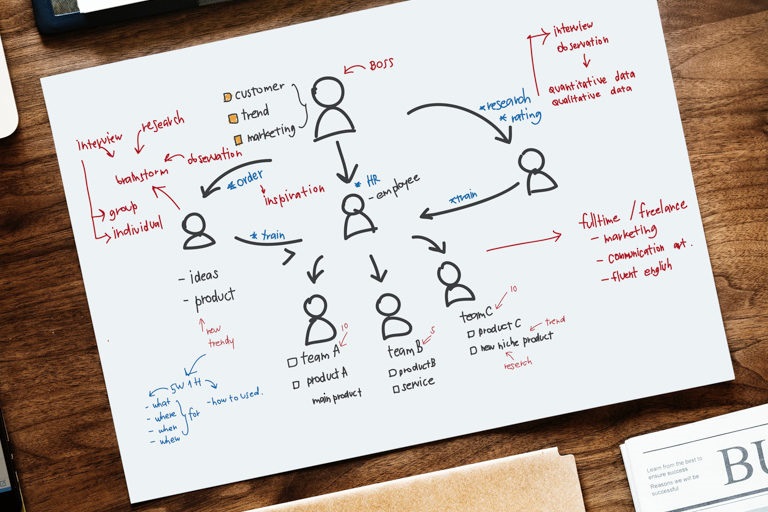 BOSS
customer
trend
marketing
interview
observation
quantitative data
qualitative data
*research
* rating
Interview
research
observation
brainstorm
group
individual
*order
inspiration
* HR
- employee
*train
* train
- ideas
- product
new
trendy
5W 1H
- what
- where
- when
- when
for
- how to used.
team A
10
product A
main product
team B
5
product B
service
team C
10
product C
new niche product
trend
reserch
fulltime / freelance
- marketing
- communication
- fluent english
Learn from the best to
ensure success
Reasons we will be
successful
BU